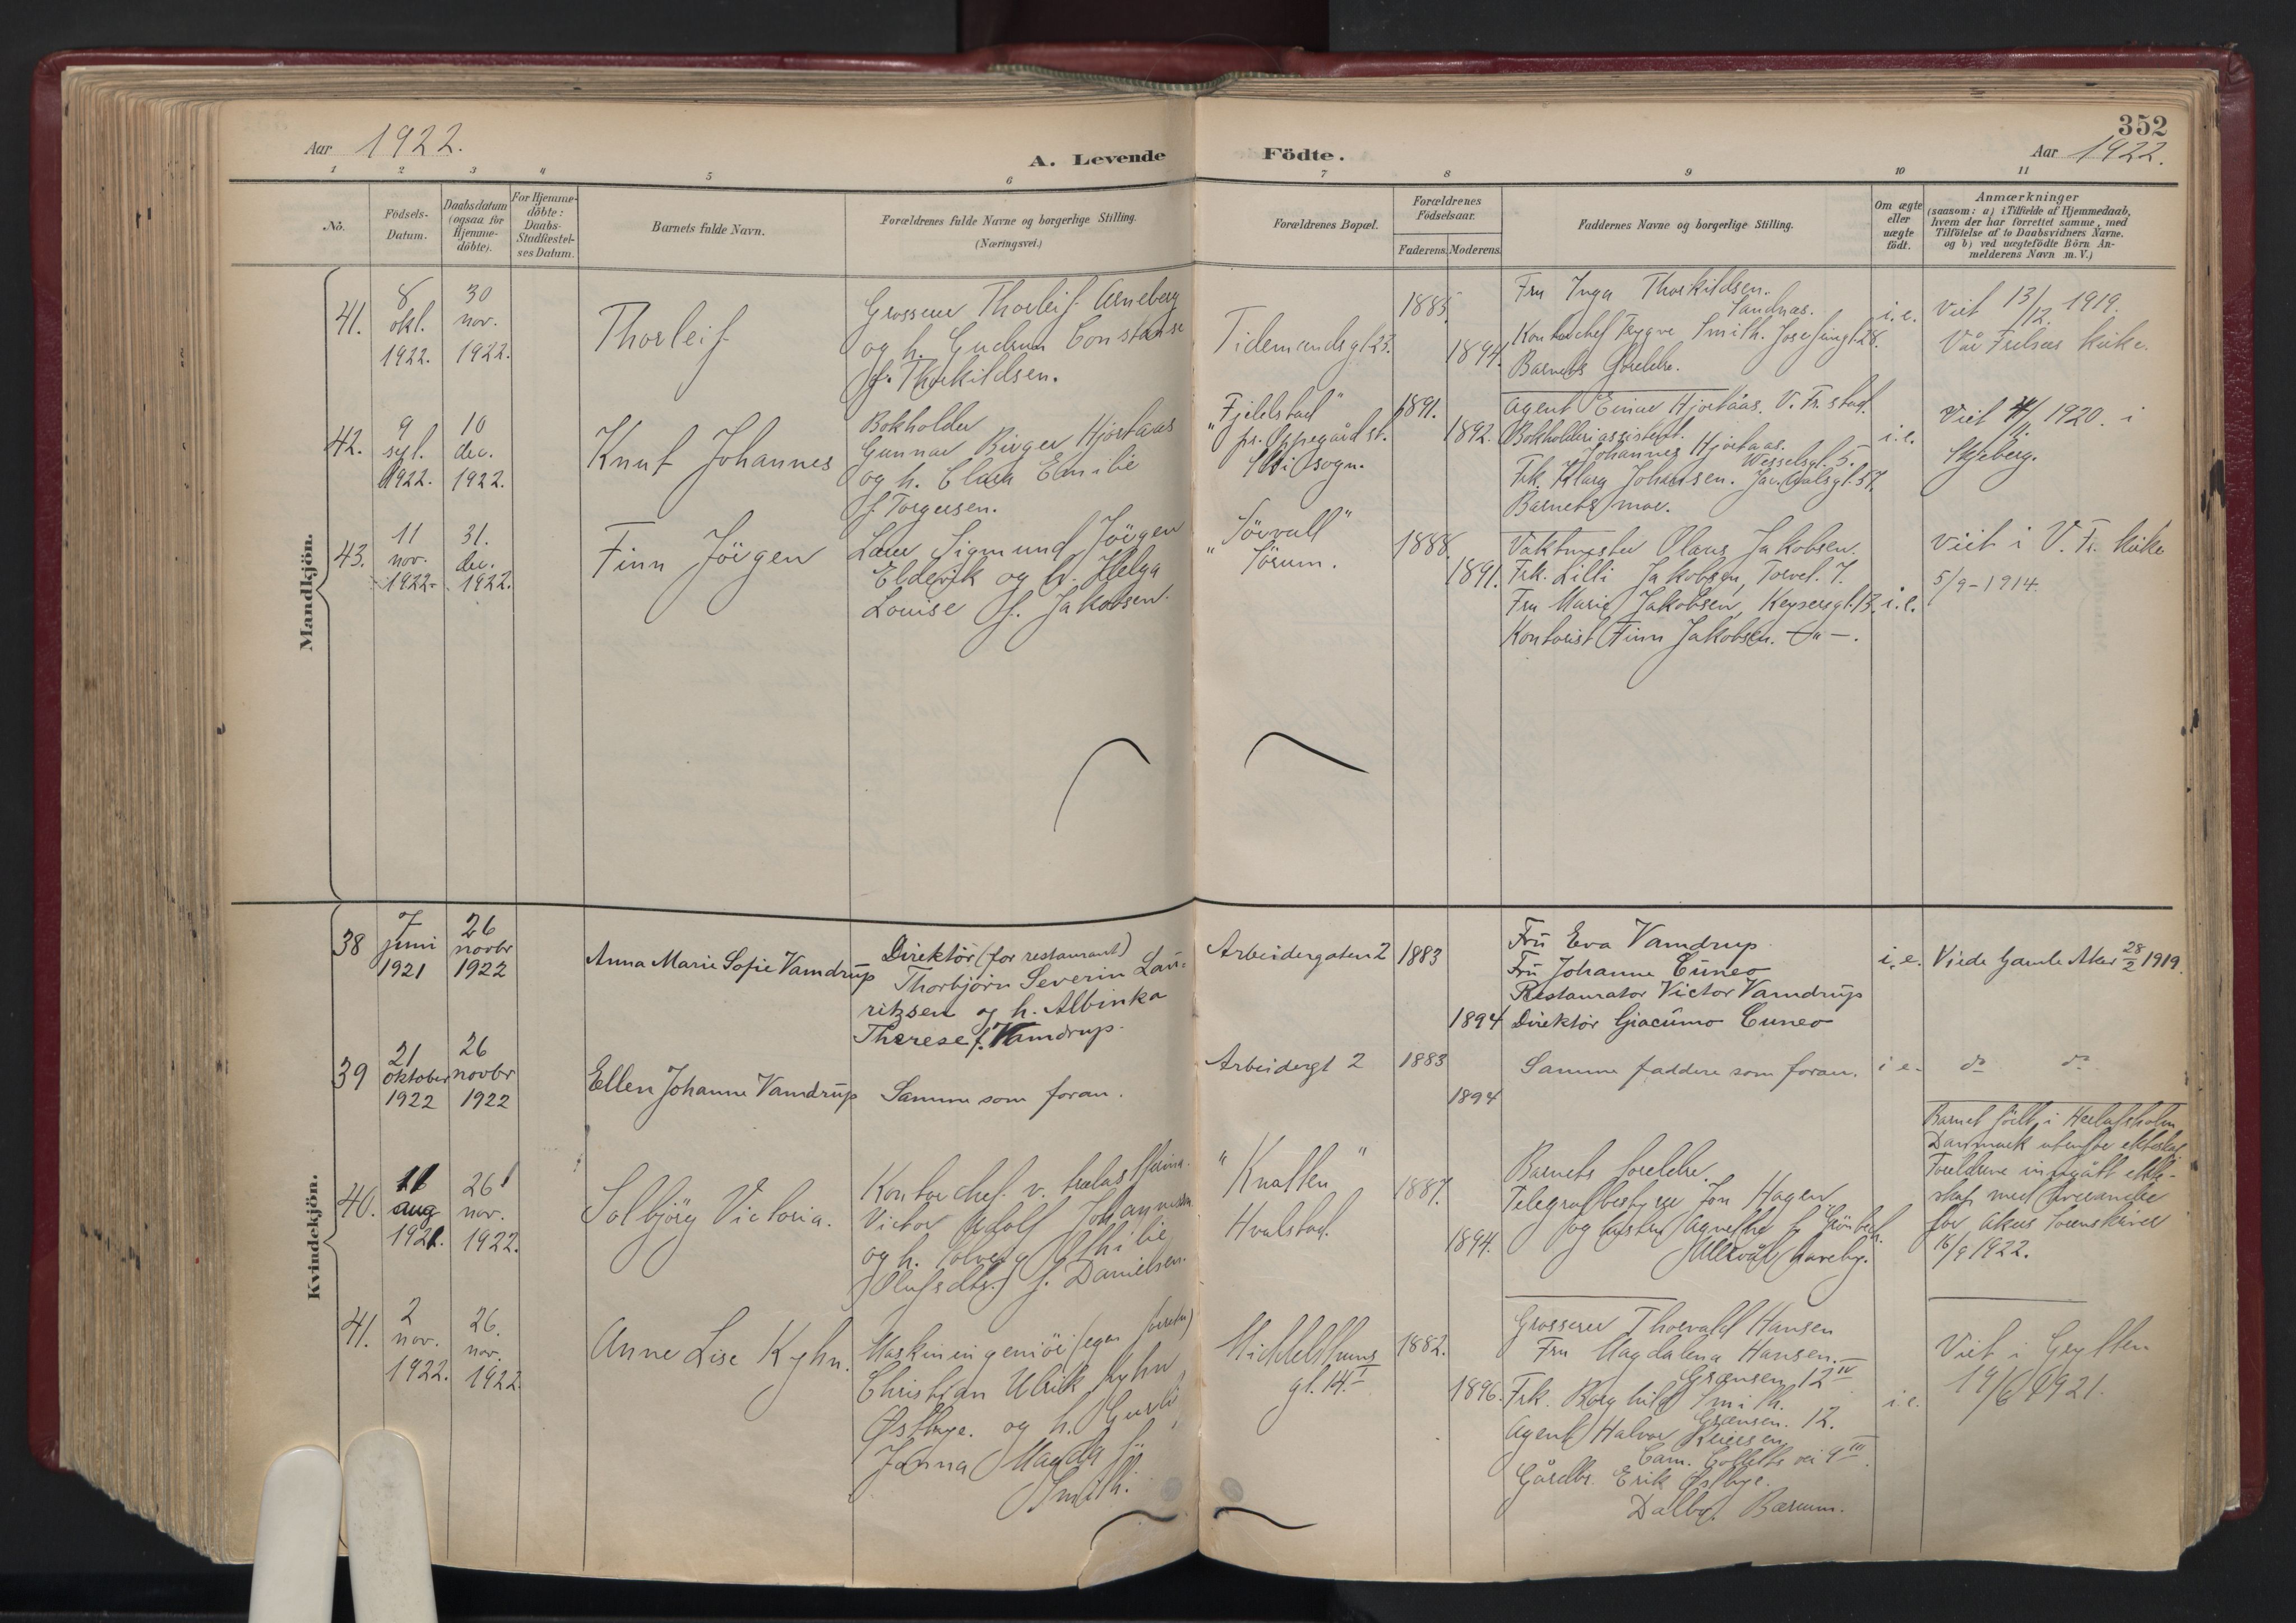 352
Aar 1922.
A. Levende Födte.
Aar 1922.
1 2 3 4 5 6 7 8 9 10 11
No.
Födsels-Datum.
Daabsdatum (ogsaa for Hjemme-döbte).
For Hjemme-döbte: Daabs-Stadfæstel-ses Datum.
Barnets fulde Navn.
Forældrenes fulde Navne og borgerlige Stilling. (Næringsvei.)
Forældrenes Bopæl.
Forældrenes Födselsaar.
Faderens. Moderens.
Faddernes Navne og borgerlige Stilling.
Om ægte eller uægte födt.
Anmærkninger
(saasom: a) i Tilfælde af Hjemmedaab,
hvem der har forrettet samme, med
Tilföielse af to Daabsvidners Navne.
og b) ved uægtefödte Börn An-
melderens Navn m. V.)
Mandkjön.
41.
8
okt.
1922.
30
nov.
1922.
Thorleif
Grosserer Thorleif Arneberg
og h. Gudrun Constanse
f. Thorkildsen.
Tidemandsgt. 23.
1885.
1894.
Fru Inga Thorkildsen.
Sandnæs.
Kontorchef Trygve Smith. Josefinegt. 28.
Barnets forældre.
i.e.
Viet 13/12 1919.
Vår Frelsers kirke.
42.
9
sept.
1922.
10
dec.
1922.
Knut Johannes
Bokholder
Gunnar Birger Hjortaas
og h. Clara Emilie
f. Torgersen.
"Fjeldstad"
pr. Oppegård st.
Ski sogn.
1891.
1892.
Agent Einar Hjortaas. V. Fr. stad.
Bokholderiassistent.
Johannes Hjortaas.
Wesselsgt. 5.
Frk. Klara Johansen. Jac. Aalsgt. 57.
Barnets mor.
i.e.
Viet 1920. i
Skjeberg.
43.
11
nov.
1922.
31.
dec.
1922.
Finn Jörgen
Lærer Sigmund Jörgen
Eldevik og h. Helga
Louise f. Jakobsen.
"Sörvall"
Sörum.
1888.
1891.
Vaktmester Olaus Jakobsen.
Frk. Lilli Jakobsen, Torvet. 7.
Fru Marie Jakobsen, Keysersgt. 13.
Kontorist Finn Jakobsen. — " —.
i.e.
Viet i V. Fr. kirke
5/9-1914.
Kvindekjön.
38
7
juni
1921
26
novbr
1922
Anna Marie Sofie Vamdrup
Direktör (for restaurant)
Thorbjörn Severin Lau-
ritzsen og h. Albinka
Therese f. Vamdrup.
Arbeidergaten 2
1883
1894
Fru Eva Vamdrup
Fru Johanne Cuneo
Restaurator Victor Vamdrup
Direktör Giacumo Cuneo
i.e.
Viede Gamle Aker 28/2 1919.
39
21
oktober
1922
26
novbr
1922
Ellen Johanne Vamdrup
Samme som foran.
Arbeidergt 2
1883
1894
Samme faddere som foran.
i e.
do do
40.
aug
1921.
26
nov.
1922.
Solbjörg Victoria.
Kontorchef. v.
Victor Adolf Johannessen
og h. Solveig Othilie
(Olufsdtr.) f. Danielsen.
"Knatten"
Hvalstad.
1887.
1894.
Barnets foreldre.
Telegrafbestyrer Jon Hagen
og Agnethe f. Grönbech.
Ullevål haveby.
Barnet født i Herlufsholm
Danmark utenfor ekteskap
Foreldrene inngått ekte-
skap med
for Akers sorenskriver
16/9 1922.
41.
2
nov.
1922.
26.
nov.
1922
Anne Lise Kyhn.
Maskiningeniör (egen forretn)
Christian Ulrik Kyhn
Østbye. og h. Gurli
Janna Magda f.
Smith.
Middelthuns
gt. 14. I
1882.
1896.
Grosserer Thorvald Hansen
Fru Magdalena Hansen.
Grænsen 12 IV
Frk. Borghild Smith.
Grænsen. 12.
Agent Halvor
Cam. Colletts vei 9 III.
Gårdbr. Erik Østbye.
Dalbo. Bærum.
i.e.
Viet i Grytten
19/6 1921.